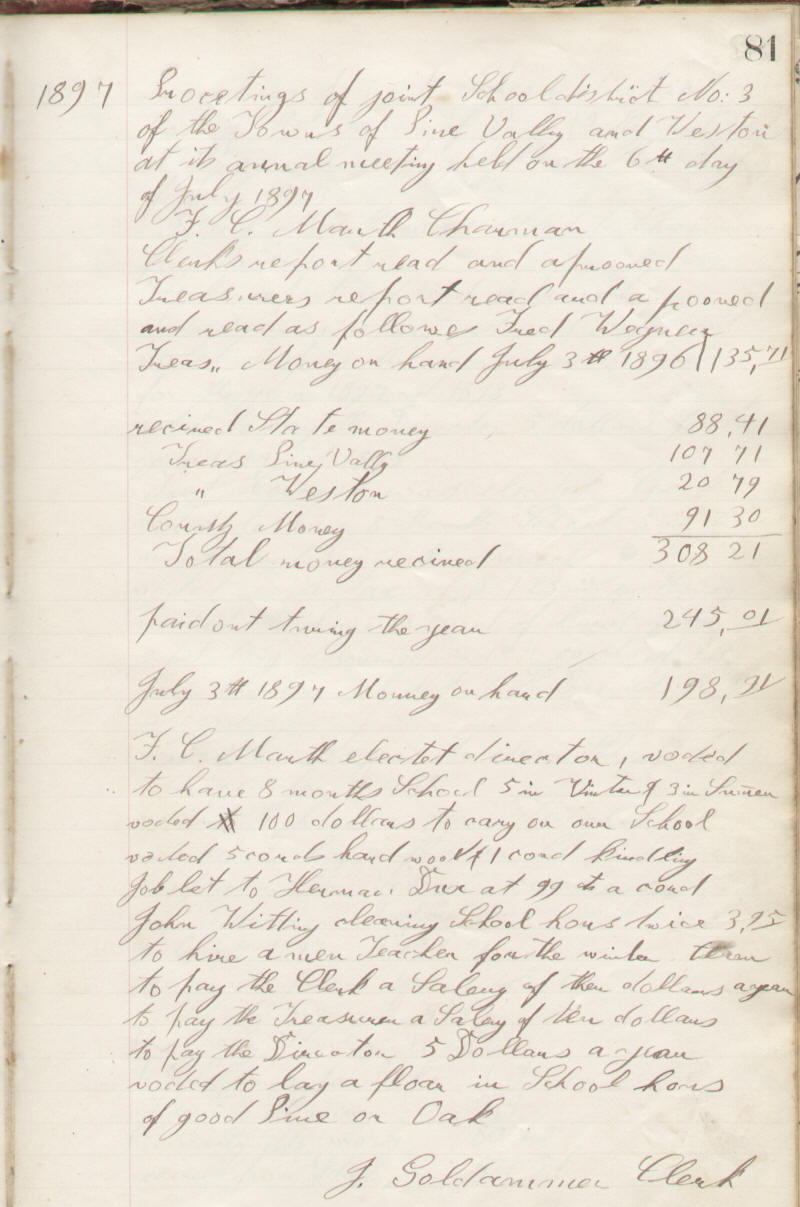 81
1897 Procetings of joint Schooldistrict No: 3
of the Towns of Pine Vally and Weston
at its annual meeting held on the 6th day
of July 1897
F. C. Marth Charman
Clerks report read and aprooved
Treasurers report read and a prooved
and read as follows Fred Wegner
Treas,, Money on hand July 3th 1896 135,71
recived State money 88,41
Treas Pine Vally 107 71
" Weston 20 79
County Money 91 30
Total money recived 308 21
paid out twring the year 245,01
July 3th 1897 Monney on hand 198,91
F. C. Marth electet director, voded
to have 8 months School 5 in Vinter & 3 in Sumer
voded 100 dollars to cary on our School
voded 5 cords hard wood & 1 cord kindling
Job let to Herman at 99 cts a cord
John Witting cleaning School hous twice 3,95
to hire a men Teacher for the winter term
to pay the Clerk a Salery of then dollars a year
to pay the Treasurer a Salery of ten dollars
to pay the Director 5 Dollars a year
voded to lay a floar in School hous
of good Pine or Oak
J. Goldammer Clerk